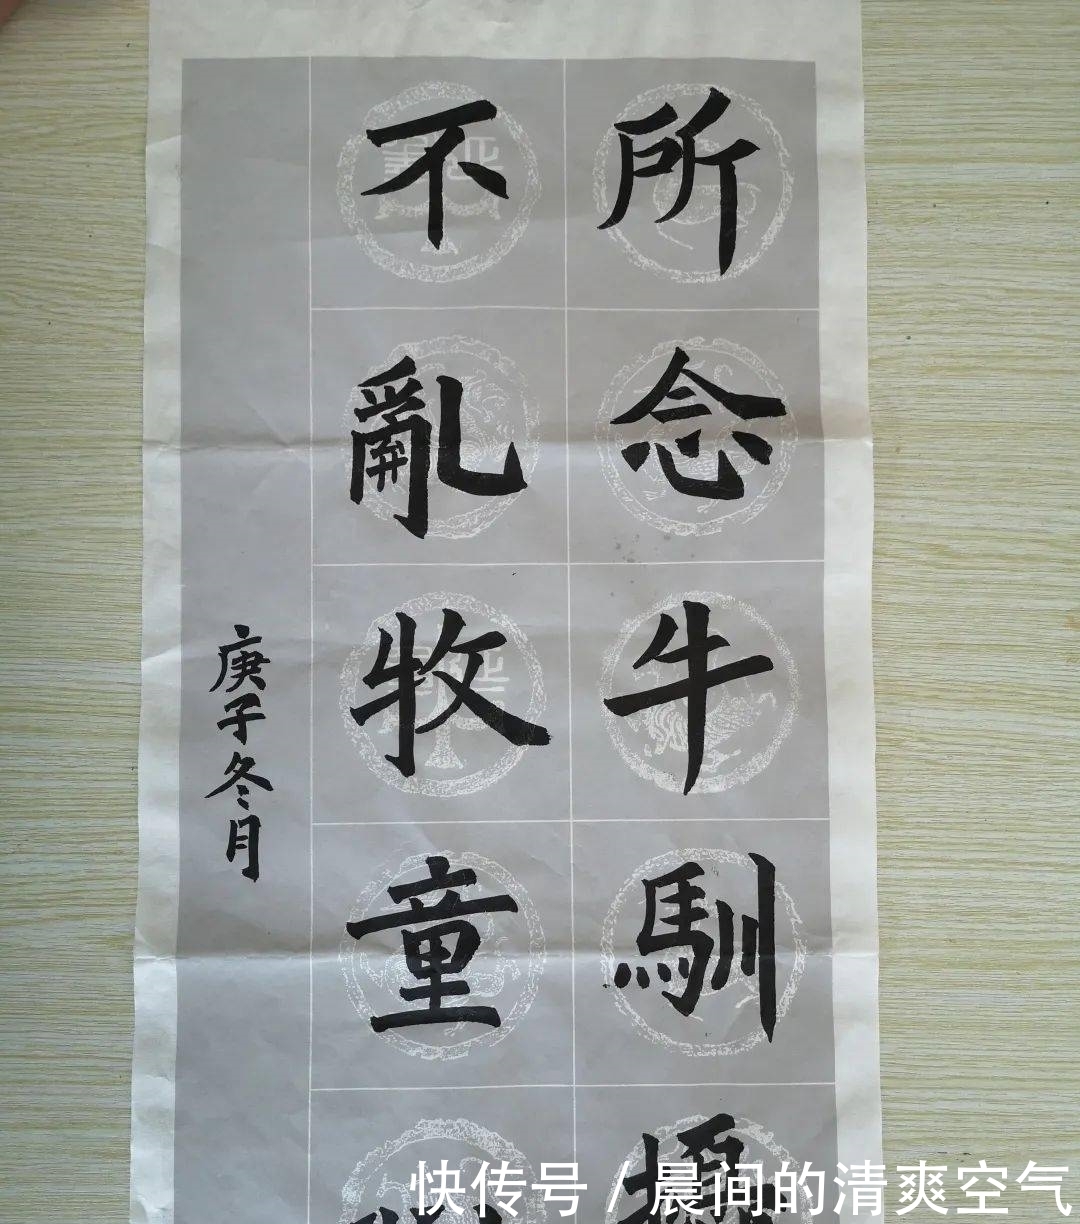 所念牛馴
不亂牧童
庚子冬月
快传号 / 晨间的清爽空气